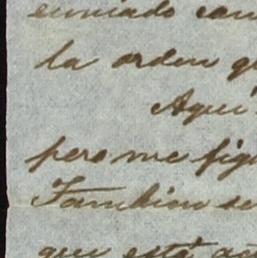 enviado con
la orden q
Aqui
pero me fig
Tambien se
que está